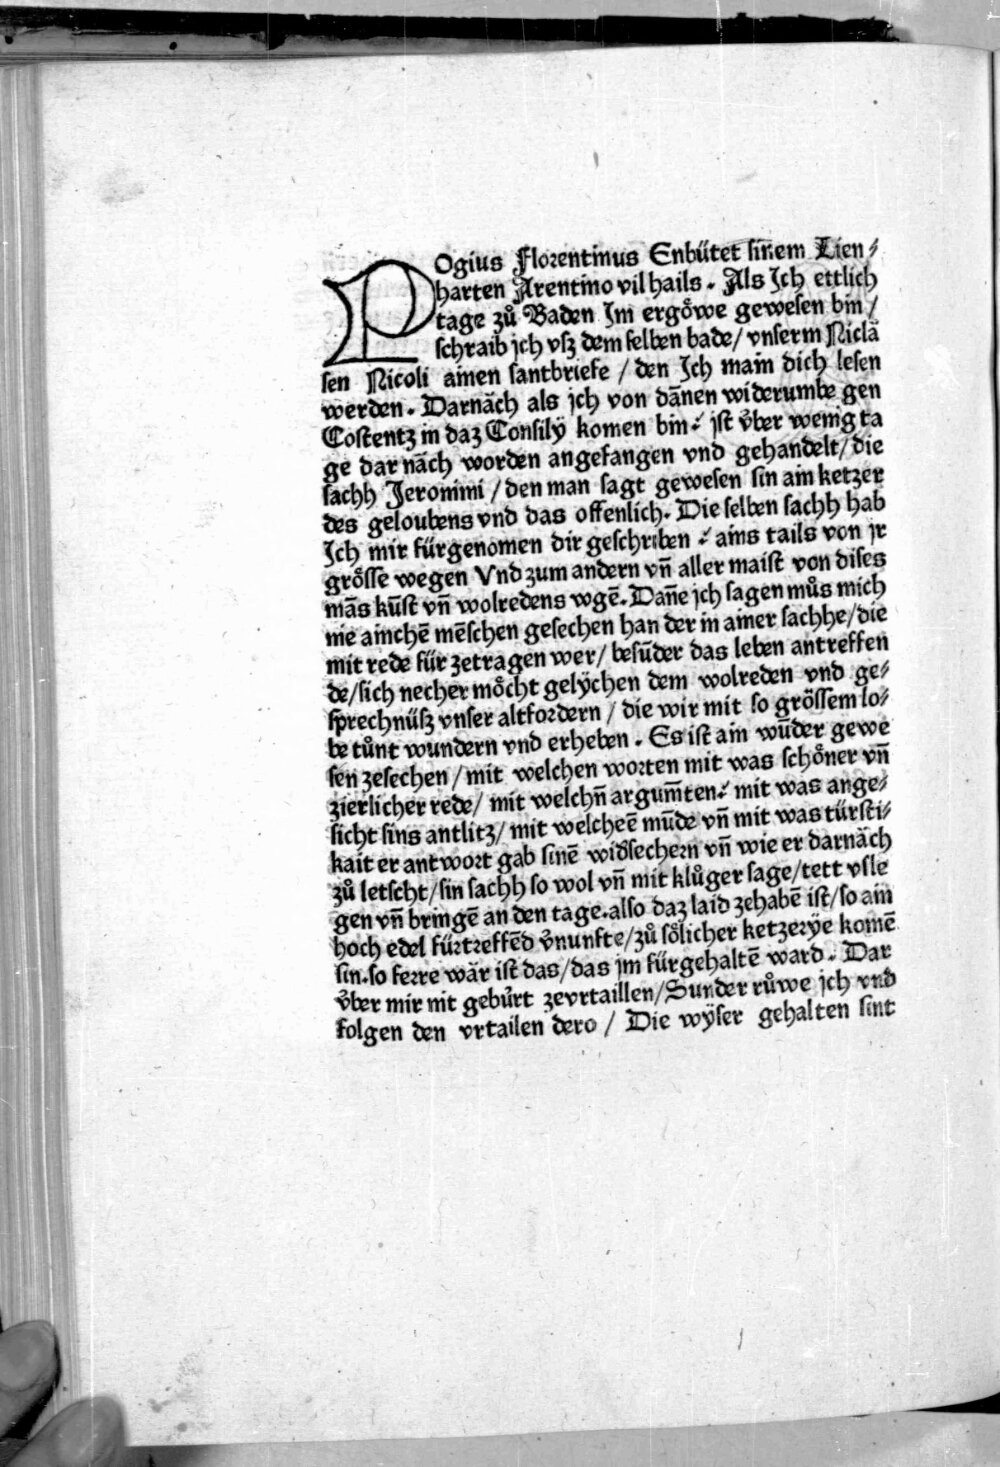 POgius Florentinus Enbütet sinem Lien⸗
harten Arentino vil hails. Als Ich ettlich
tage zů Baden Im ergöwe gewesen bin /
schraib jch vsz dem selben bade / vnserm Niclā
sen Nicoli ainen santbriefe / den Ich main dich lesen
werden. Darnāch als jch von dānen widerumbe gen
Costentz in daz Consilÿ komen bin⸗ jst v̈ber wenig ta
ge dar nāch worden angefangen vnd gehandelt / die
sachh Jeronimi / den man sagt gewesen sin ain ketzer
des geloubens vnd das offenlich. Die selben sachh hab
Ich mir fürgenomen dir geschriben ⸗ ains tails von jr
grösse wegen Vnd zum andern vn̄ aller maist von dises
mās kūst vn̄ wolredens wgē. Dan̄e jch sagen můs mich
nie ainchē mēschen gesechen han der in ainer sachhe / die
mit rede für zetragen wer / besūder das leben antreffen
de / sich necher möcht gelÿchen dem wolreden vnd ge⸗
sprechnüsz vnser altfordern / die wir mit so grössem lo⸗
be tůnt wundern vnd erheben. Es ist ain wūder gewe
sen zesechen / mit welchen worten mit was schöner vn̄
zierlicher rede / mit welchn̄ argum̄ten⸗ mit was ange⸗
sicht sins antlitz / mit welcheē mūde vn̄ mit was türsti⸗
kait er antwort gab sinē widsechern vn̄ wie er darnāch
zů letscht / sin sachh so wol vn̄ mit klůger sage / tett vsle
gen vn̄ bringē an den tage. also daz laid zehabē ist / so ain
hoch edel fürtreffēd v̈nunfte / zů sölicher ketzerÿe komē
sin. so ferre wār ist das / das jm fürgehaltē ward. Dar
v̈ber mir nit gebürt zevrtaillen / Sunder růwe jch vnd
folgen den vrtailen dero / Die wÿser gehalten sint